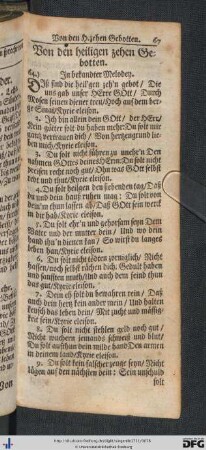 Von den H. zehen Gebotten. 67
Von den heiligen zehen Ge-
botten.
64.) In bekandter Melodey.
Diß sind die heil'gen zeh'n gebot / Die
uns gab unser HErre GOtt / Durch
Mosen seinen diener treu / Hoch auf dem ber-
ge Sinai / Kyrie eleison.
2. Ich bin allein dein GOtt / der HErr /
Kein götter solt du haben mehr: Du solt mir
gantz vertrauen dich / Von hertzengrund lie-
ben mich / Kyrie eleison.
3. Du solt nicht führen zu uneh'r'n Den
nahmen GOttes deines HErrn: Du solt nicht
preisen recht noch gut / Ohn was GOtt selbst
redt und thut / Kyrie eleison.
4. Du solt heilgen den siebenden tag / Daß
du und dein hauß ruhen mag: Du solt von
dein'm thun lassen ab / Daß GOtt sein werck
in dir hab / Kyrie eleison.
5. Du solt ehr'n und gehorsam seyn Dem
Vater und der mutter dein / Und wo dein
hand ihn'n dienen kan / So wirst du langes
leben han / Kyrie eleison.
6. Du solt nicht tödten zorniglich / Nicht
hassen / noch selbst rächen dich. Gedult haben
und sanften muth / Und auch dem feind thun
das gut / Kyrie eleison.
7. Dein eh solt du bewahren rein / Daß
auch dein hertz kein ander mein / Und halten
keusch das leben dein / Mit zucht und mäßig-
keit sein / Kyrie eleison.
8. Du solt nicht stehlen geld noch gut /
Nicht wuchern jemands schweiß und blut /
Du solt aufthun dein milde hand Den armen
in deinem land / Kyrie eleison.
9. Du solt kein falscher zeuge seyn / Nicht
lügen auf den nächsten dein: Sein unschuld
solt
Von
DFG